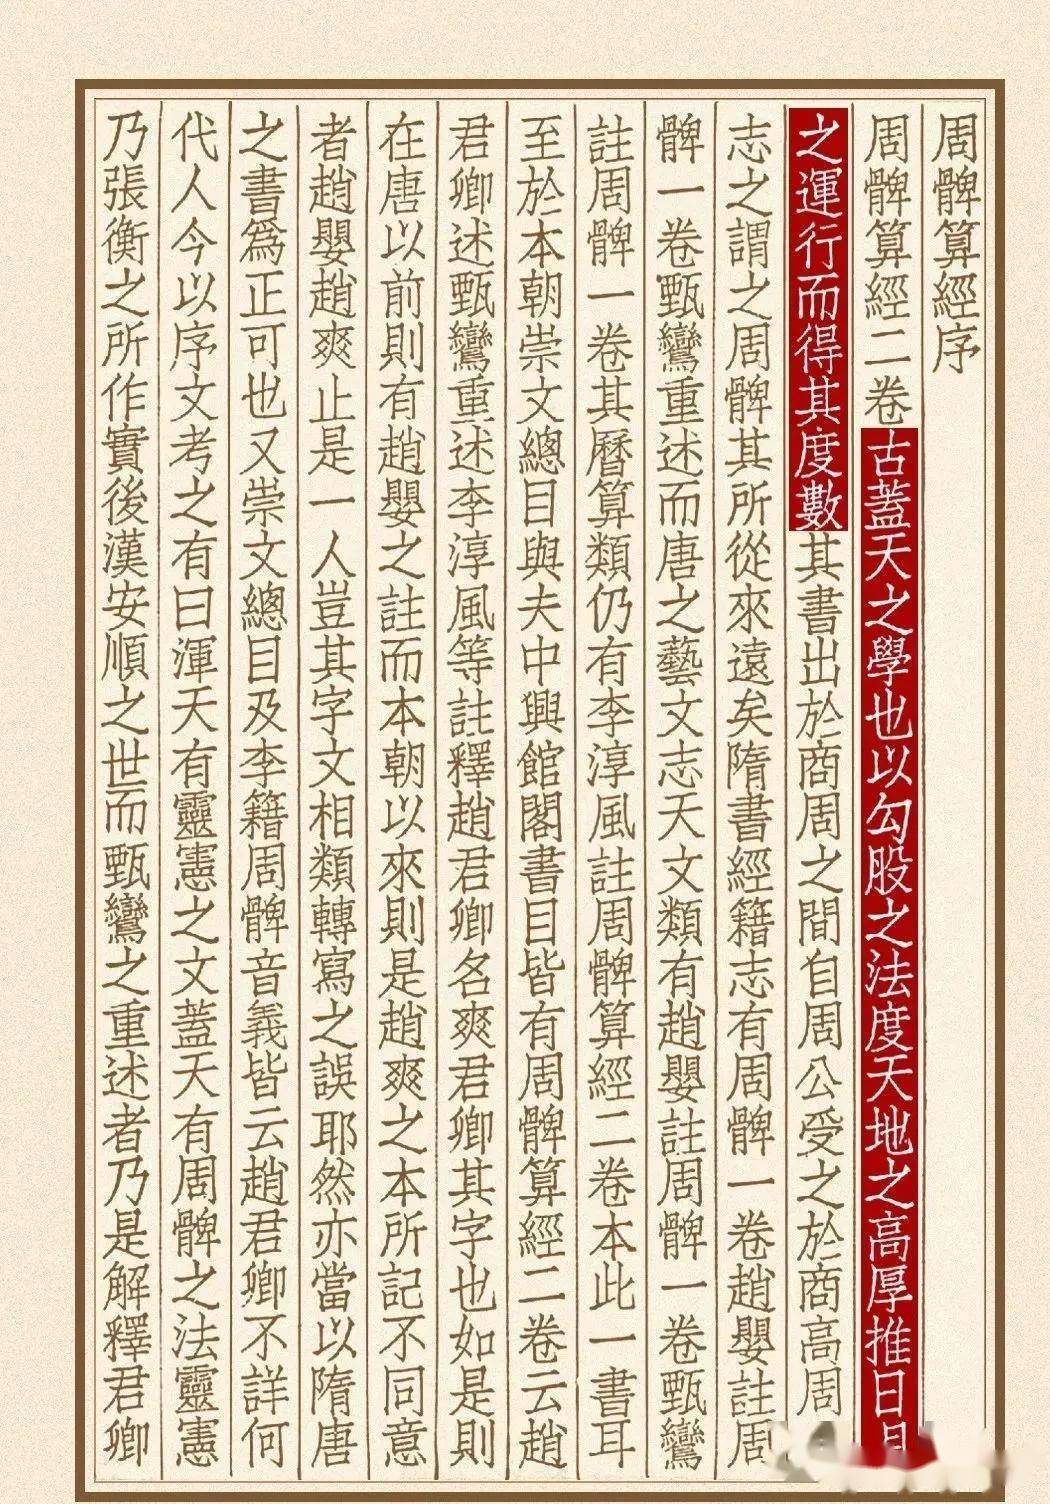 周髀算經序
周髀算經二卷古蓋天之學也以勾股之法度天地之高厚推日月
之運行而得其度數其書出於商周之間自周公受之於商高周
志之謂之周髀其所從來遠矣隋書經籍志有周髀一卷趙嬰註周
髀一卷甄鸞重述而唐之藝文志天文類有趙嬰註周髀一卷甄鸞
註周髀一卷其曆算類仍有李淳風註周髀算經二卷本此一書耳
至於本朝崇文總目與夫中興館閣書目皆有周髀算經二卷云趙
君卿述甄鸞重述李淳風等註釋趙君卿名爽君卿其字也如是則
在唐以前則有趙嬰之註而本朝以來則是趙爽之本所記不同意
者趙嬰趙爽止是一人豈其字文相類轉寫之誤耶然亦當以隋唐
之書為正可也又崇文總目及李籍周髀音義皆云趙君卿不詳何
代人今以序文考之有曰渾天有靈憲之文蓋天有周髀之法靈憲
乃張衡之所作實後漢安順之世而甄鸞之重述者乃是解釋君卿